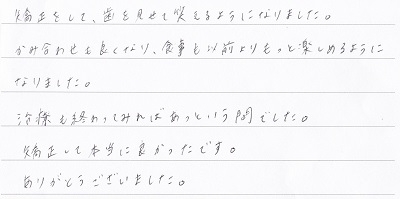 矯正をして、歯を見せて笑えるようになりました。
かみ合わせも良くなり、食事も以前よりもっと楽しめるように
なりました。
治療も終わってみればあっという間でした。
矯正して本当に良かったです。
ありがとうございました。